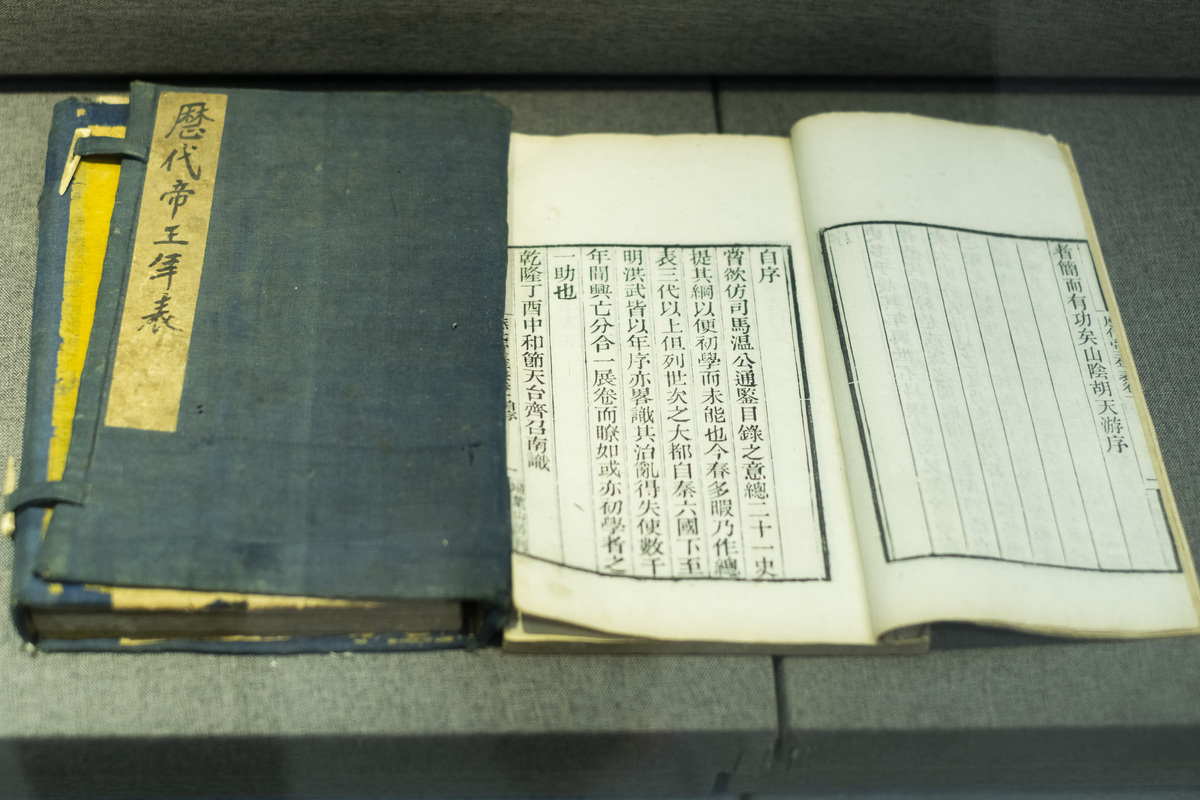 歴代帝王年表
者簡而有功矣山陰胡天游序
自序
嘗欲仿司馬温公通鑒目錄之意總二十一史
提其綱以便初學而未能也今春多暇乃作總
表三代以上但列世次之大都自秦六國下至
明洪武皆以年序亦畧識其治亂得失使數千
年間興亡分合一展卷而瞭如或亦初學者之
一助也
乾隆丁酉中和節天台齊召南識